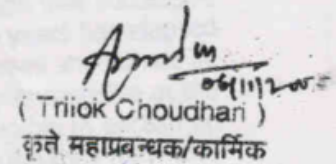 06/11/200
( Triiok Choudhari )
कृते महाप्रबन्धक/कार्मिक